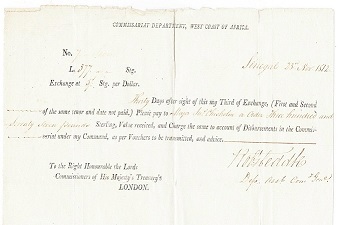 COMMISSARIAT DEPARTMENT, WEST COAST OF AFRICA.
Senegal 25th Nov 1812
No. 7
L 377 Stg.
Exchange at Stg. per Dollar.
Thirty Days after sight of this my Third of Exchange, (First and Second
of the same tenor and date not paid,) Please pay to Major Chisholm or Order Three hundred and
Seventy Seven pounds Sterling, Value received, and Charge the same to account of Disbursements in the Commis-
sariat under my Command, as per Vouchers to be transmitted, and advice.
To the Right Honourable the Lords
Commissioners of His Majesty's Treasury
LONDON.